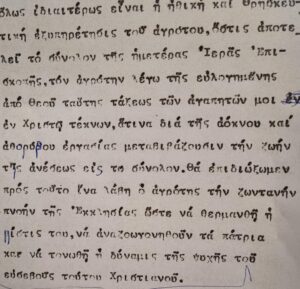 ὅλως ἰδιαιτέρως εἶναι ἡ ἠθική καί θρησκευ-
τική ἐξυπηρέτησις τοῦ ἀγρότου, ὅστις ἀποτε-
λεῖ τό σύνολον τῆς ἡμετέρας Ἱερᾶς Ἐπι-
σκοπῆς, τόν ἀγρότην λέγω τῆς εὐλογημένης
ἀπό Θεοῦ ταύτης τάξεως τῶν ἀγαπητῶν μοι
ἐν Χριστῷ τέκνων, ἅτινα διά τῆς ἀόκνου καί
ἀθορύβου ἐργασίας μεταβιβάζουσιν τήν ζωήν
τῆς ἀνέσεως εἰς τό σύνολον. Θά ἐπιδιώξωμεν
πρός τοῦτο ἵνα λάβῃ ὁ ἀγρότης τήν ζωντανήν
πνοήν τῆς Ἐκκλησίας ὥστε νά θερμανθῇ ἡ
πίστις του, νά ἀναζωογονηθοῦν τά πάτρια
καί νά τονωθῇ ἡ δύναμις τῆς ψυχῆς τοῦ
εὐσεβοῦς τούτου Χριστιανοῦ.